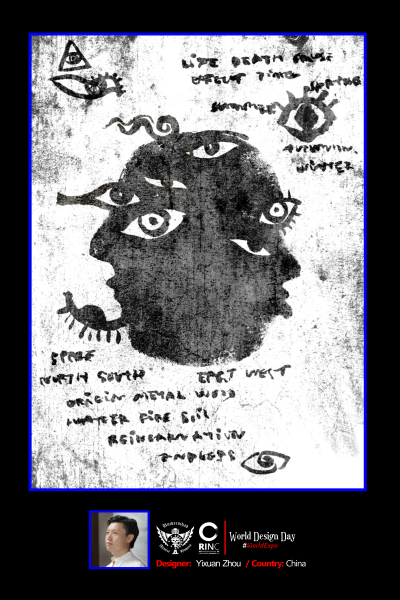 LIFE DEATH CAUSE
EFFECT TIME SPRING
SUMMER
AUTUMN
WINTER
SPACE
NORTH SOUTH EAST WEST
ORIGIN METAL WOOD
WATER FIRE SOIL
REINCARNATION
ENDLESS
C
RINC
World Design Day
#WorldExpo
Designer: Yixuan Zhou / Country: China